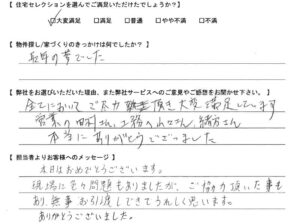 【 住宅セレクションを選んでご満足いただけたでしょうか? 】
☑大変満足 □満足 □普通 □やや不満 □不満
【 物件探し/家づくりのきっかけは何でしたか? 】
長年の夢でした
【 弊社をお選びいただいた理由、また弊社サービスへのご意見やご感想をお聞かせ下さい。 】
全てにおいて ご尽力 頂き 大変 満足しています
営業の 町村さん、工務の 山々さん、緒方さん
本当に ありがとう ございました
【 担当者よりお客様へのメッセージ 】
本日はおめでとうございます。
現場に色々問題も有りましたが、ご協力頂いた事も
あり、無事 お引渡しできてうれしく思います。
ありがとうございました。